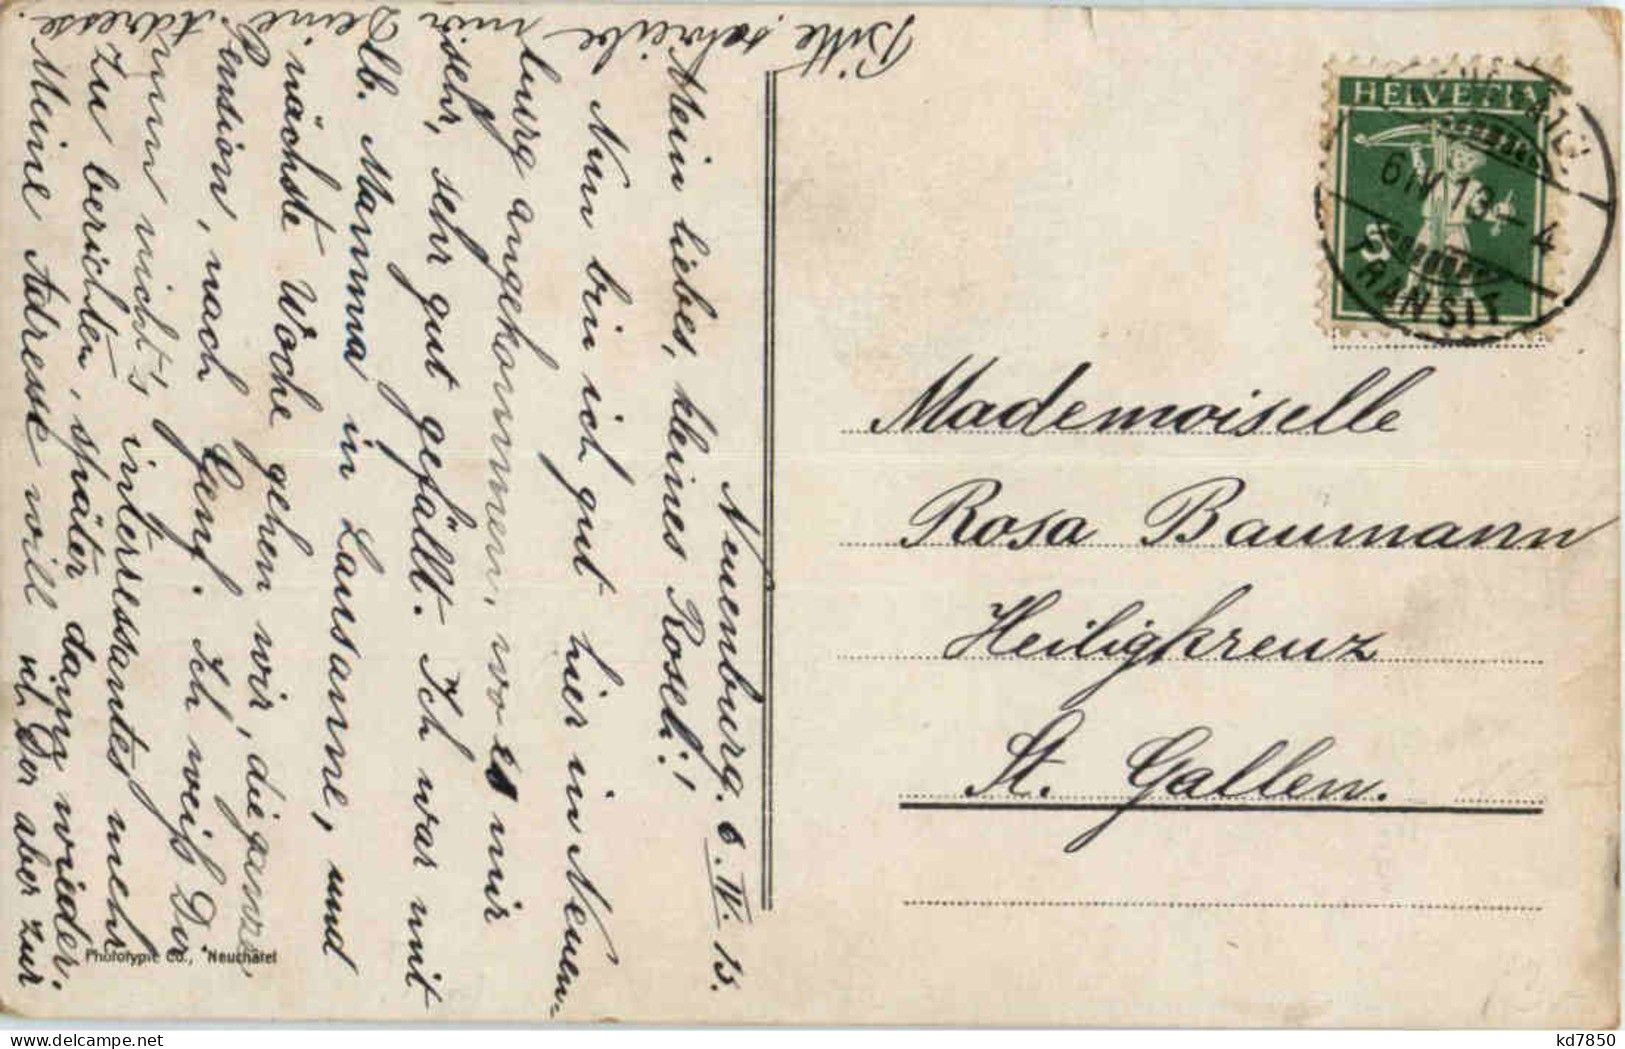 Neuenburg. 6. IV. 13.
Mein liebes, kleines Roseli!
Nun bin ich gut hier in Neuen-
burg angekommen, wo es mir
sehr, sehr gut gefällt. Ich war mit
lb. Mamma in Lausanne, und
nächste Woche gehen wir, die ganze
Pension, nach Genf. Ich weiß Dir
nun nicht's, interessantes mehr
zu berichten, später dann wieder.
Meine Adresse will ich Dir aber zur
Bitte schreibe mir Deine Adresse.
HELVETIA
5
6 IV 13 - 4
TRANSIT
Mademoiselle
Rosa Baumann
Heiligkreuz
St. Gallen.
Phototypie Co., Neuchatel
kd7850